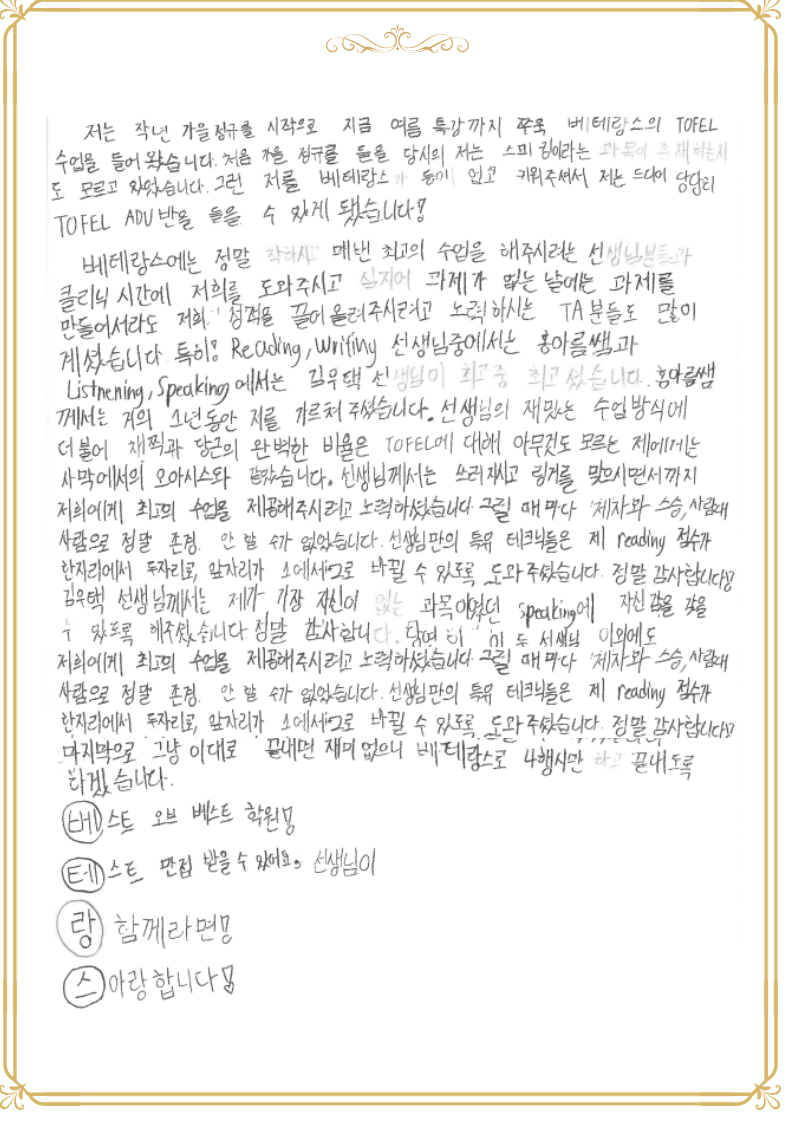 저는 작년 가을 정규를 시작으로 지금 여름 특강까지 쭈욱 베테랑스의 TOFEL
수업을 들어 왔습니다. 처음 가을 정규를 들을 당시의 저는 스피킹이라는 과목이 존재하는지
도 모르고 있었습니다. 그런 저를 베테랑스가 업고 키워주셔서 저는 드디어 당당히
TOFEL ADV반을 들을 수 있게 됐습니다!
베테랑스에는 정말 착하시고 매번 최고의 수업을 해주시려는 선생님분들과
클리닉 시간에 저희를 도와주시고 심지어 과제가 없는 날에는 과제를
만들어서라도 저희 성적을 끌어올려주시려고 노력하시는 TA분들도 많이
계셨습니다 특히! Reading, Writing 선생님중에서는 홍아름쌤과
Listnening, Speaking에서는 김우택 선생님이 최고중 최고셨습니다. 홍아름쌤
께서는 거의 1년동안 저를 가르쳐 주셨습니다. 선생님의 재밌는 수업방식에
더불어 채찍과 당근의 완벽한 비율은 TOFEL에 대해 아무것도 모르는 제에게는
사막에서의 오아시스와 같았습니다. 선생님께서는 쓰러지시고 링거를 맞으시면서까지
저희에게 최고의 수업을 제공해주시려고 노력하셨습니다. 그럴 때마다 '제자와 스승, 사람대
사람으로 정말 존경. 안 할 수가 없었습니다. 선생님만의 특유 테크닉들은 제 reading 점수가
한자리에서 두자리로, 앞자리가 1에서 2로 바뀔 수 있도록 도와주셨습니다. 정말 감사합니다!
김우택 선생님께서는 제가 가장 자신이 없는 과목이었던 speaking에 자신감을 갖을
수 있도록 해주셨습니다 정말 감사합니다. 당연히 이 두 서생님 이외에도
저희에게 최고의 수업을 제공해주시려고 노력하셨습니다. 그럴 때마다 '제자와 스승, 사람대
사람으로 정말 존경. 안 할 수가 없었습니다. 선생님만의 특유 테크닉들은 제 reading 점수가
한자리에서 두자리로, 앞자리가 1에서 2로 바뀔 수 있도록 도와주셨습니다. 정말 감사합니다!
마지막으로 그냥 이대로 끝내면 재미없으니 베테랑스로 4행시만 하고 끝내도록
하겠습니다.
베스트 오브 베스트 학원!
테스트 만점 받을 수 있어요. 선생님이
랑 함께라면!
스아랑합니다!